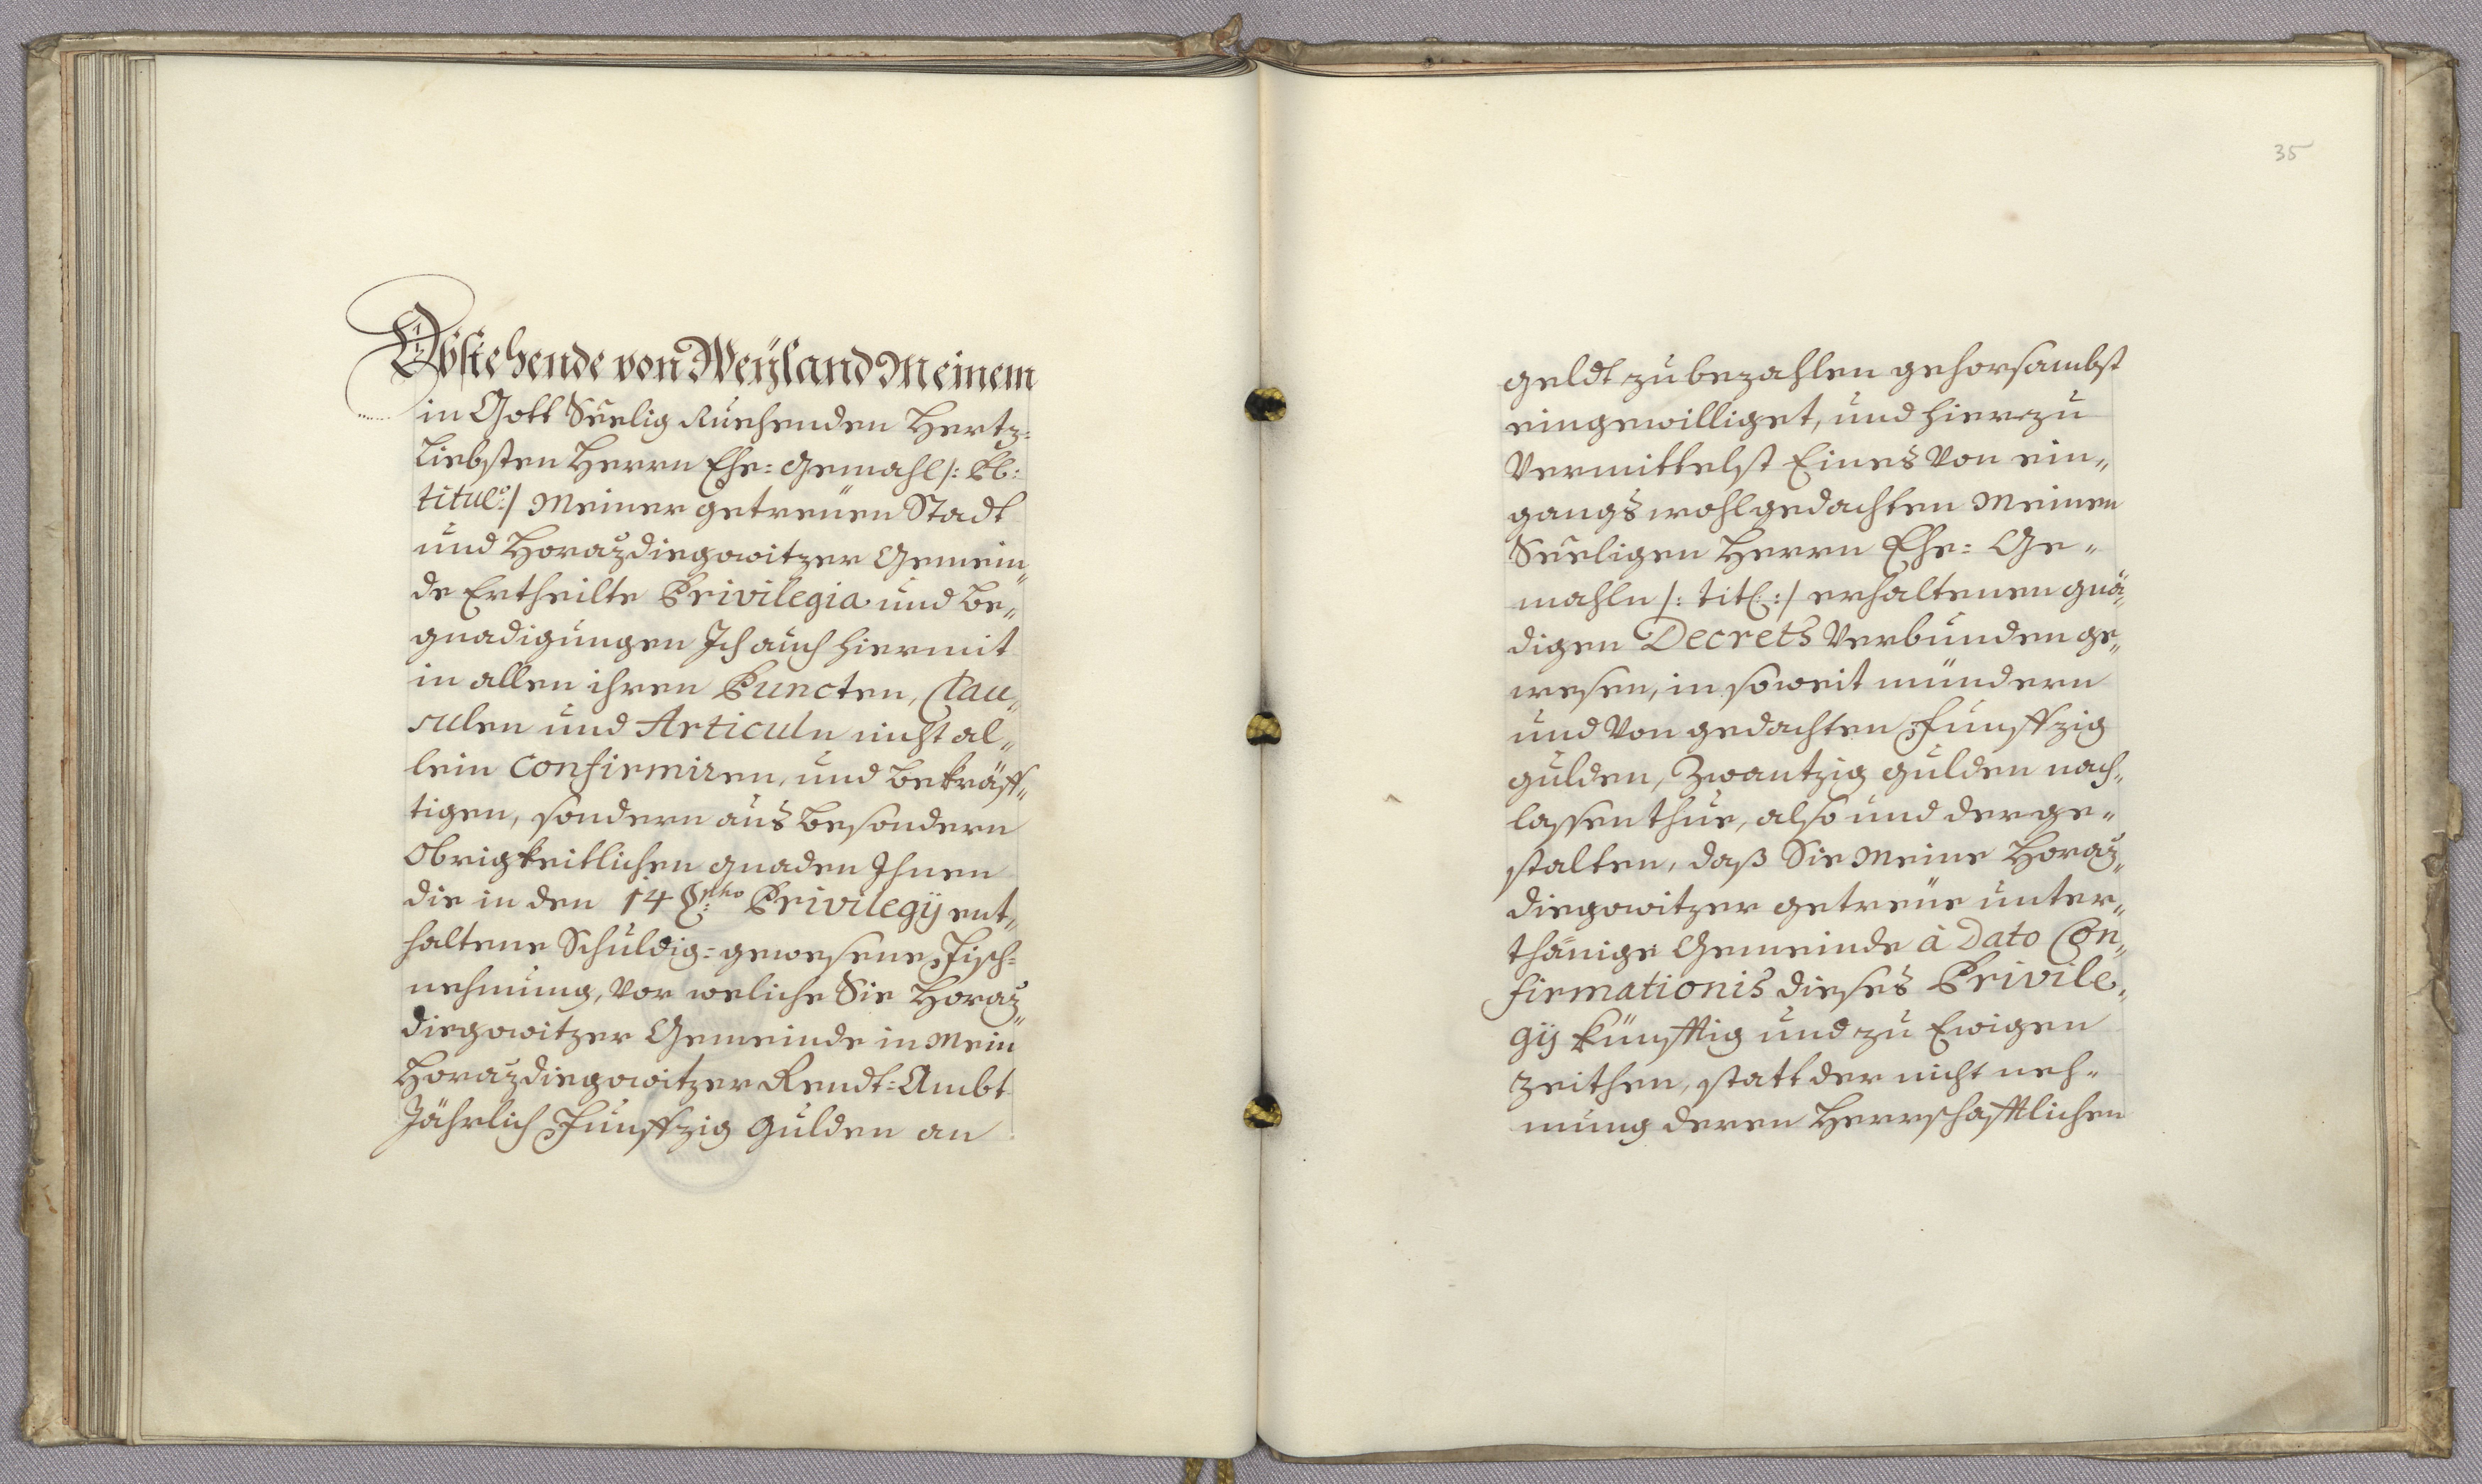 Obstehende von Weÿland Meinem
in Gott Seelig Ruehenden Hertz=
Liebsten Herrn Ehe=Gemahl /: Pl:
titul: / Meiner getreuen Stadt
und Horaždiegowitzer Gemein„
de Ertheilte Privilegia und Be„
gnadigungen Ich auch hiermit
in allen ihren Puncten, Clau„
sulen und Articuln nicht al„
lein confirmiren, und bekräff„
tigen, sondern aus besondern
Obrigkeitlichen gnaden Ihnen
die in den 14 Privilegÿ ent„
haltene Schuldig=gewesene Fisch=
nehmung, vor weliche Sie Horaž„
diegowitzer Gemeinde in Mein
Horaždiegowitzer Rendt=Ambt
Jährlich Funffzig Gulden an
35
geldt zu bezahlen gehorsambst
eingewilliget, und hierzu
Vermittelst Eines Von ein„
gangs wohlgedachten Meinen
Seeligen Herrn Ehe=Ge„
mahln /: titl: / erhaltenen gnä„
digen Decrets Verbunden ge„
wesen, in soweit mündern
und Von gedachten Funffzig
gulden, Zwantzig gulden nach„
lassen thue, also und derge„
stalten, daß Sie Meine Horaž„
diegowitzer getreüe unter„
thänige Gemeinde à Dato Con„
firmationis dieses Privile„
gÿ künfftig und zu Ewigen
Zeithen, statt der nicht neh„
mung deren Herrschafftlichen